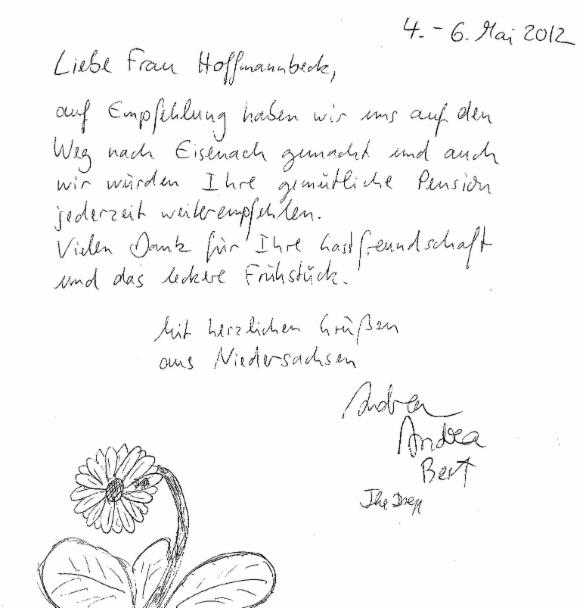 4. - 6. Mai 2012
Liebe Frau Hoffmannbeck,
auf Empfehlung haben wir uns auf den
Weg nach Eisenach gemacht und auch
wir würden Ihre gemütliche Pension
jederzeit weiterempfehlen.
Vielen Dank für Ihre Gastfreundschaft
und das leckere Frühstück.
Mit herzlichen Grüßen
aus Niedersachsen
Andrea
Andrea
Bert